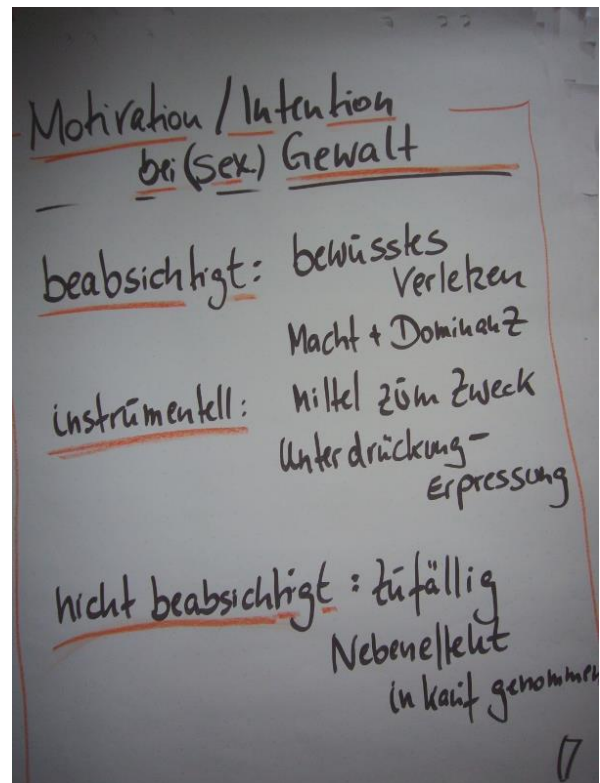 Motivation / Intention
bei (sex) Gewalt
beabsichtigt: bewusstes
Verletzen
Macht + Dominanz
instrumentell: Mittel zum Zweck
Unterdrückung-
Erpressung
nicht beabsichtigt: zufällig
Nebeneffekt
in kauf genommen